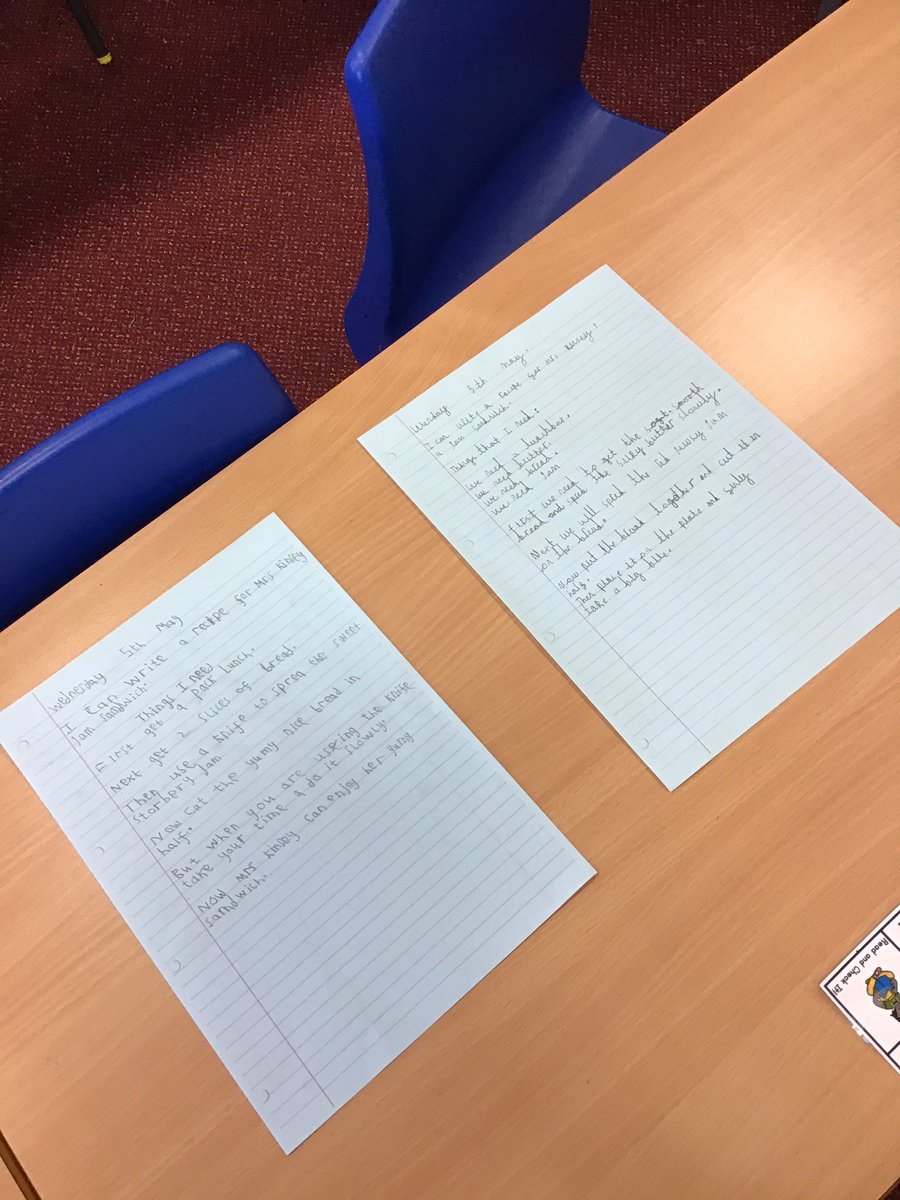 Wednesday 5th May
I can write a recipe for Mrs Kinsey
jam sandwich.
Things I need
First get a pack lunch.
Next get 2 slices of bread.
Then use a knife to sprea the sweet
storbery jam.
Now cut the yumy nice bread in
half.
But when you are useing the knife
take your time a do it slowly.
Now Mrs Kinsey can enjoy her yumy
sandwich.
5th May.
I can write a recipe for Mrs
a jam sandwich.
Things that I need:
we need a lunchbox.
we need butter.
we need bread.
we need jam
First we need to get the soft, smooth
bread and spred the silky butter slowly.
Next we will spred the red jam
on the bread.
Now put the bread together and cut it in
half.
Then place it on the plate and
take a big bite.
Read and Check It!